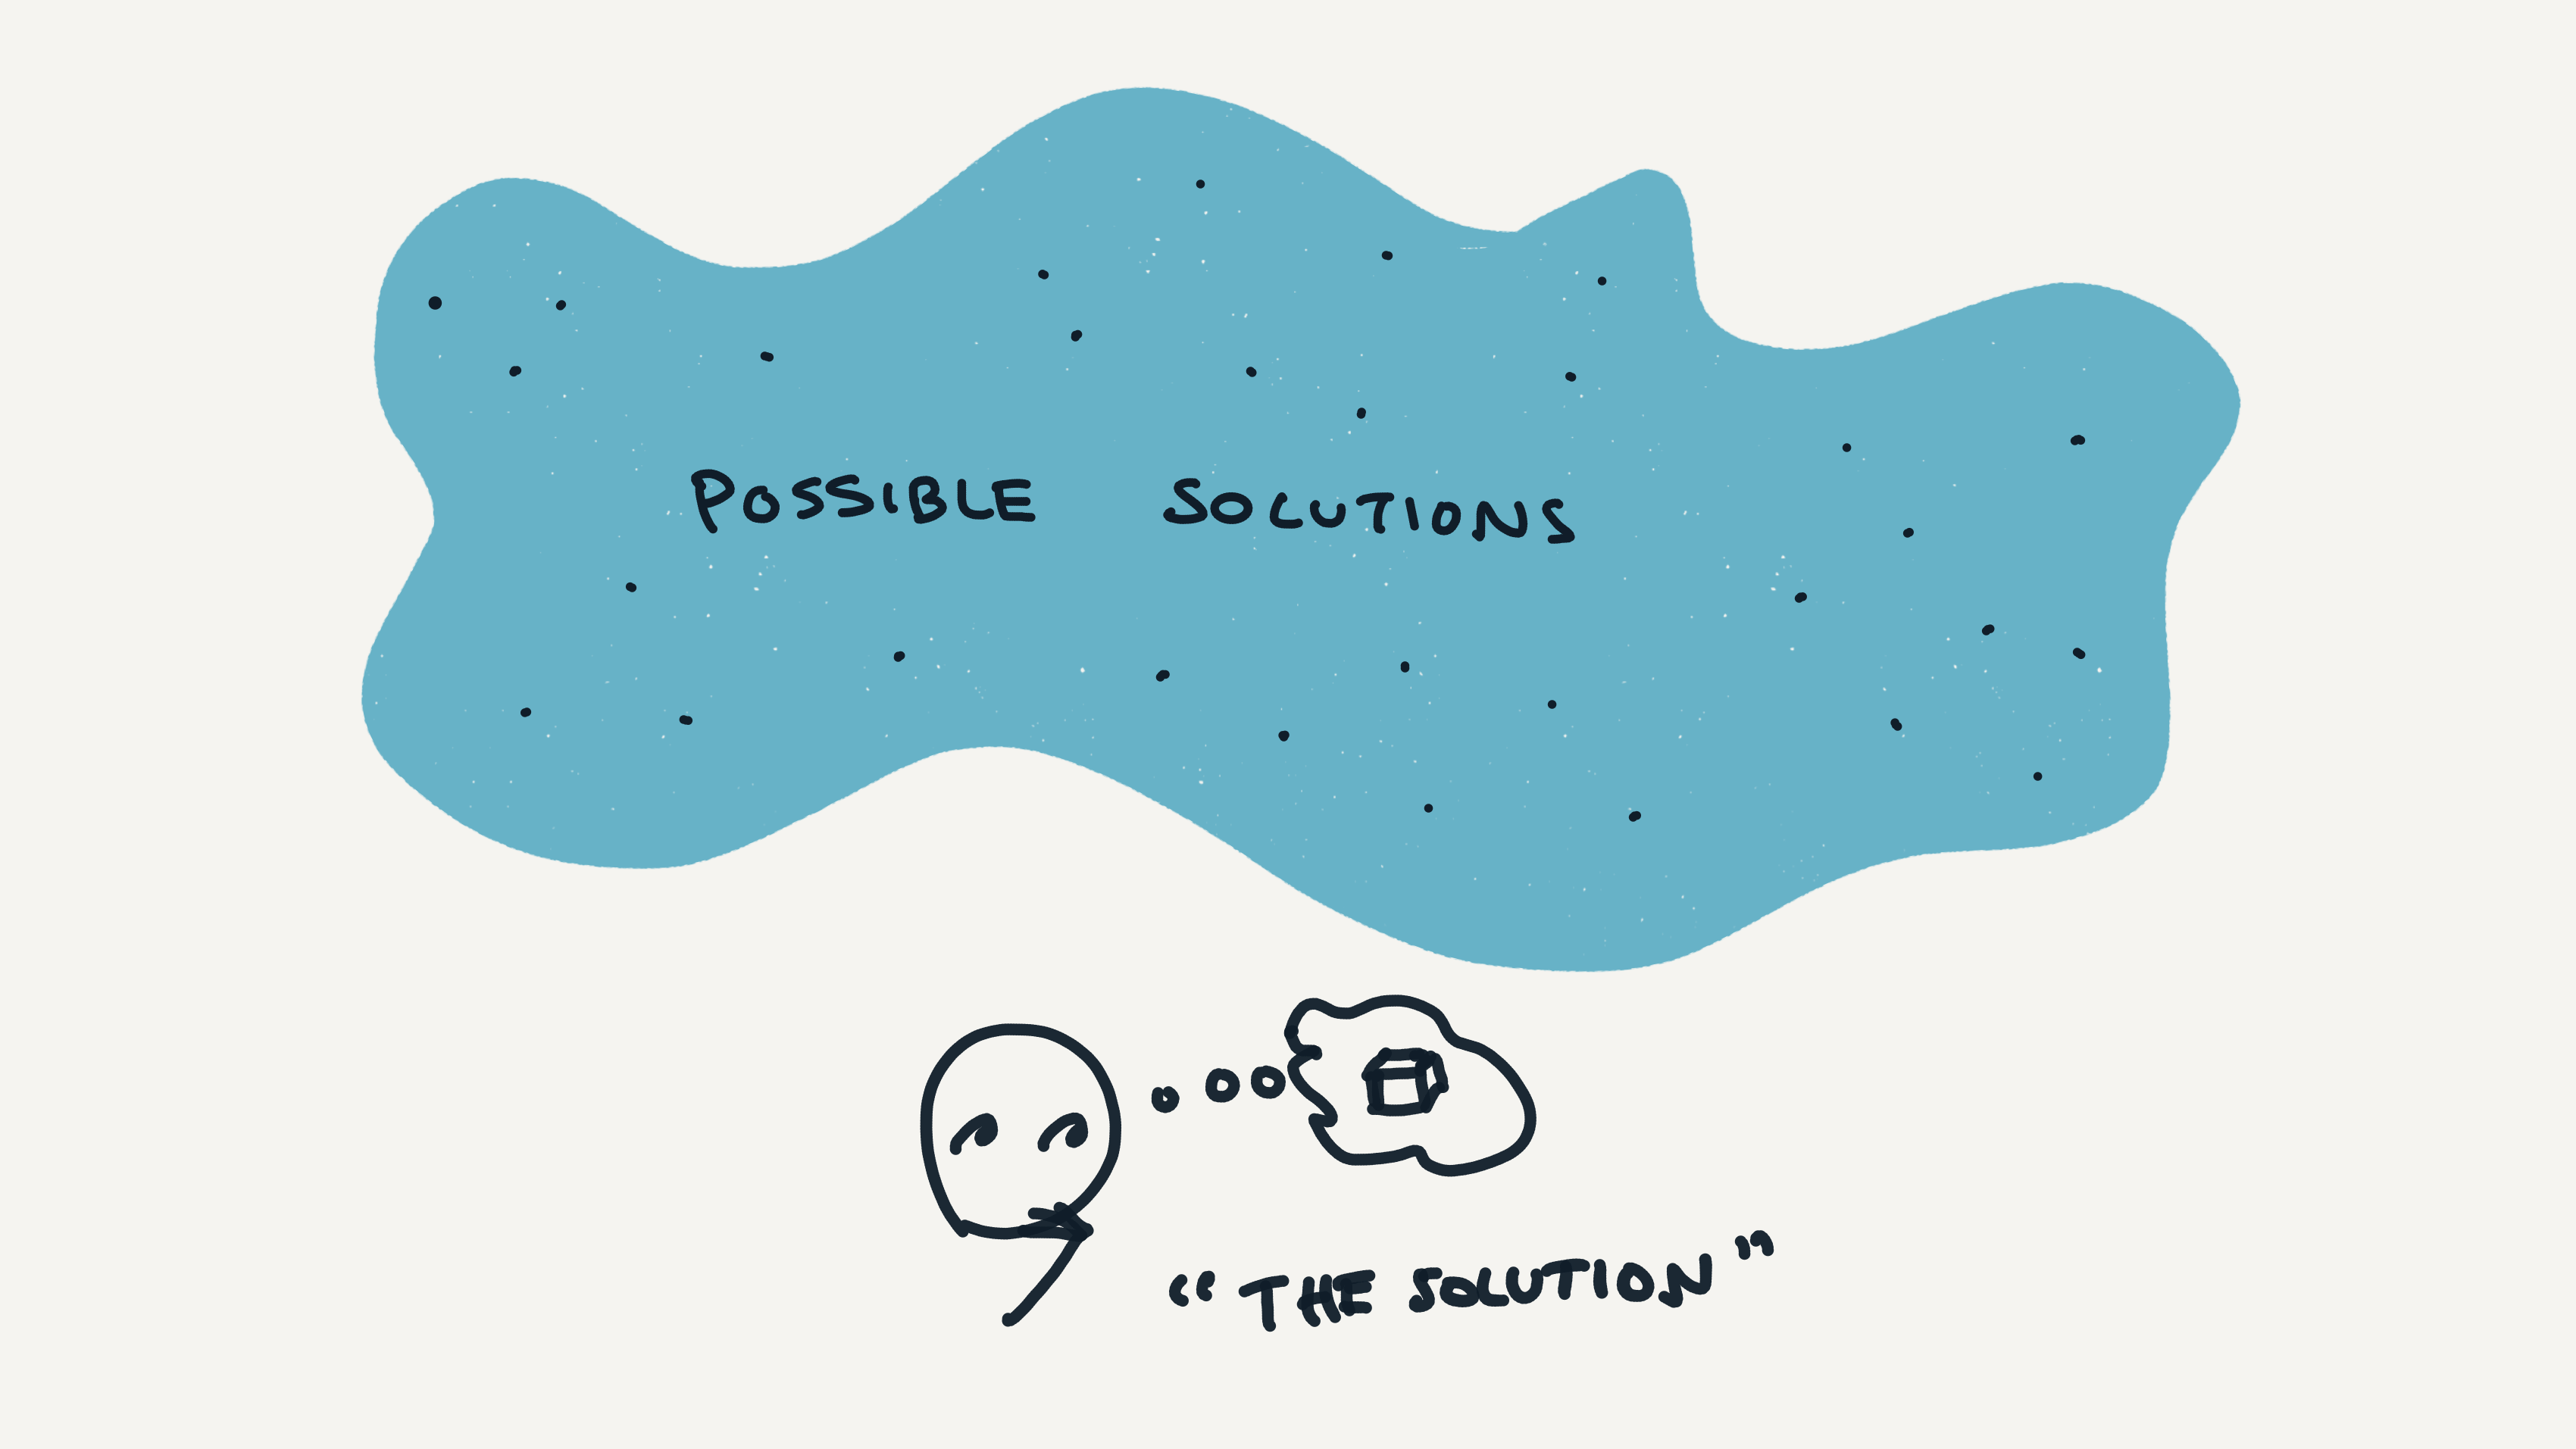 POSSIBLE SOLUTIONS
“THE SOLUTION”